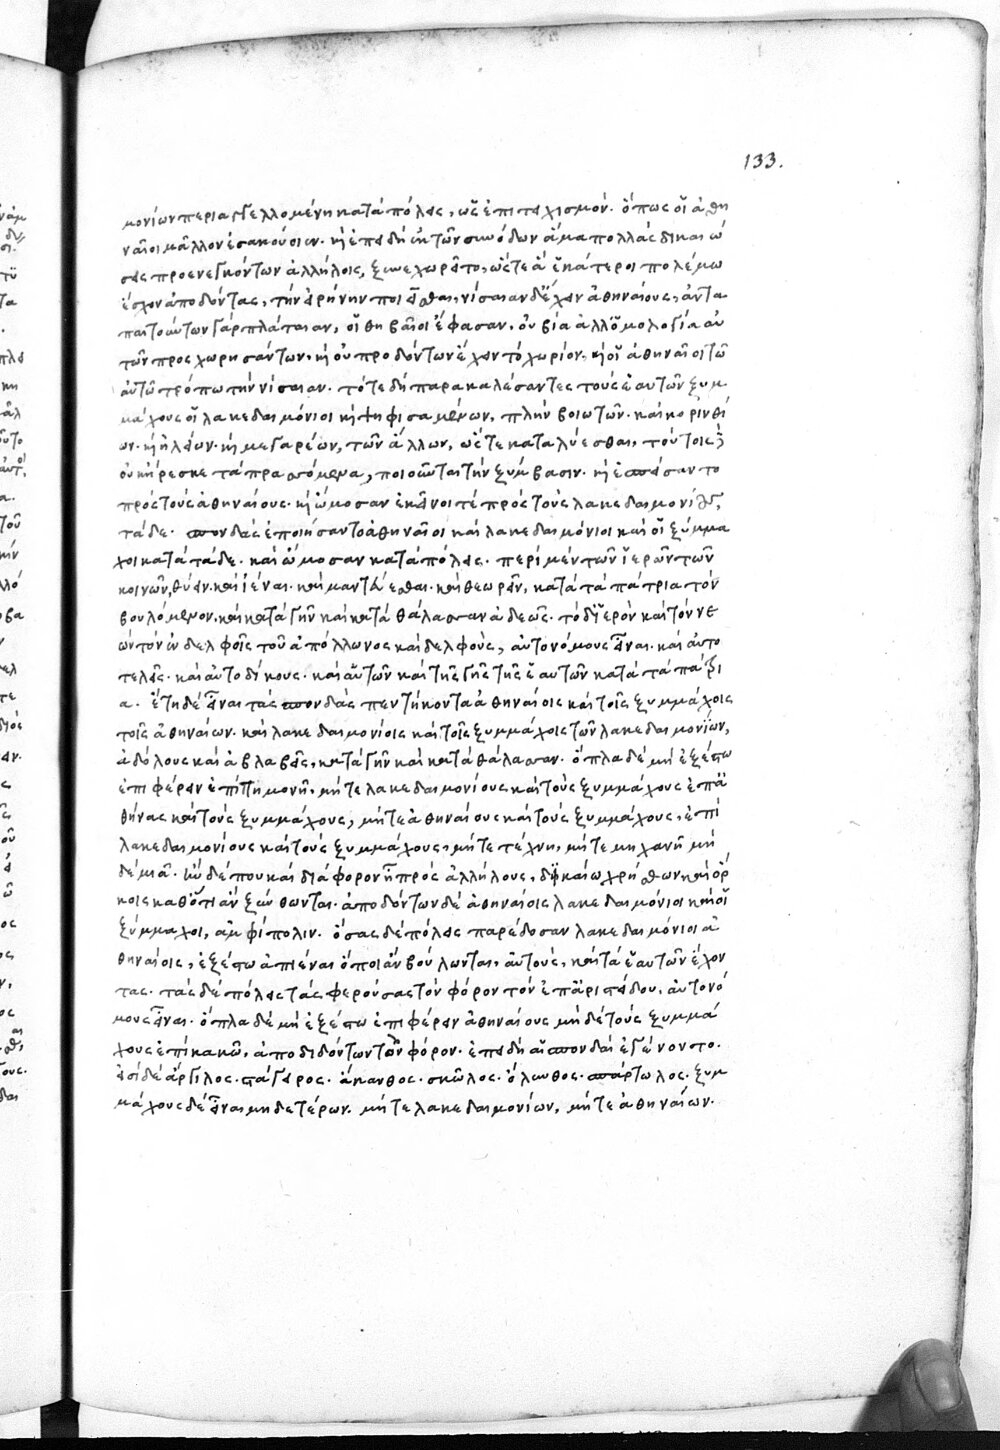 133.
μονίων περιαγγελλομένη κατὰ πόλεις, ὡς ἐπιτειχισμόν. ὅπως οἱ ἀθη
ναῖοι μᾶλλον ἐσακούοιεν. κὴ ἐπειδὴ ἐκ τῶν συνόδων ἅμα πολλὰς δικαιώ
σεις προενεγκόντων ἀλλήλοις, ξυνεχωρεῖτο, ὥστε ἃ ἑκάτεροι πολέμω
ἔσχον ἀποδόντας, τὴν εἰρήνην ποιεῖσθαι, νίσαιαν δ' ἔχειν ἀθηναίους, ἀντα
παιτούντων γὰρ πλάταιαν, οἱ θηβαῖοι ἔφασαν, οὐ βία ἀλλ' ὁμολογία αὐ
τῶν προσχωρησάντων, κὴ οὐ προδόντων ἔχειν τὸ χωρίον, κὴ οἱ ἀθηναῖοι τῶ
αὐτῶ τρόπω τὴν νίσαιαν. τότε δὴ παρακαλέσαντες τοὺς ἑαυτῶν ξυμ
μάχους οἱ λακεδαιμόνιοι κὴ ψηφισαμένων, πλὴν βοιωτῶν. καὶ κορινθί
ων. κὴ ἠλείων. κὴ μεγαρέων, τῶν ἄλλων, ὥστε καταλύεσθαι, τούτοις δὲ
οὐκ ἤρεσκε τὰ πρασσόμενα, ποιοῦνται τὴν ξύμβασιν. κὴ ἐσπείσαντο
πρὸς τοὺς ἀθηναίους. κὴ ὤμοσαν ἐκεῖνοι τὲ πρὸς τοὺς λακεδαιμονίους,
τάδε. σπονδὰς ἐποιήσαντο ἀθηναῖοι καὶ λακεδαιμόνιοι καὶ οἱ ξύμμα
χοι κατὰ τάδε. καὶ ὤμοσαν κατὰ πόλεις. περὶ μὲν τῶν ἱερῶν τῶν
κοινῶν, θύειν. καὶ ἰέναι. καὶ μαντεύεσθαι. καὶ θεωρεῖν, κατὰ τὰ πάτρια τὸν
βουλόμενον. καὶ κατὰ γῆν καὶ κατὰ θάλασσαν ἀδεῶς. τὸ δ' ἱερὸν καὶ τὸν νε
ὼν τὸν ἐν δελφοῖς τοῦ ἀπόλλωνος καὶ δελφοὺς, αὐτονόμους εἶναι. καὶ αὐτο
τελεῖς. καὶ αὐτοδίκους. καὶ αὑτῶν καὶ τῆς γῆς τῆς ἑαυτῶν κατὰ τὰ πάτρι
α. ἔτη δὲ εἶναι τὰς σπονδὰς πεντήκοντα ἀθηναίοις καὶ τοῖς ξυμμάχοις
τοῖς ἀθηναίων. καὶ λακεδαιμονίοις καὶ τοῖς ξυμμάχοις τῶν λακεδαιμονίων,
ἀδόλους καὶ ἀβλαβεῖς, κατὰ γῆν καὶ κατὰ θάλασσαν. ὅπλα δὲ μὴ ἐξέστω
ἐπιφέρειν ἐπὶ πημονῆ, μήτε λακεδαιμονίους καὶ τοὺς ξυμμάχους ἐπ' ἀ
θήνας καὶ τοὺς ξυμμάχους, μήτε ἀθηναίους καὶ τοὺς ξυμμάχους, ἐπὶ
λακεδαιμονίους καὶ τοὺς ξυμμάχους, μήτε τέχνη, μήτε μηχανῆ μη
δεμιᾶ. ἢν δέ που καὶ διάφορον ἦ πρὸς ἀλλήλους, καὶ ὅρ
κοις καθ' ὅτι ἂν ξύνθωνται. ἀποδόντων δὲ ἀθηναίοις λακεδαιμόνιοι καὶ οἱ
ξύμμαχοι, ἀμφίπολιν. ὅσας δὲ πόλεις παρέδοσαν λακεδαιμόνιοι ἀ
θηναίοις, ἐξέστω ἀπιέναι ὅποι ἂν βούλωνται, αὐτοὺς, καὶ τὰ ἑαυτῶν ἔχον
τας. τὰς δὲ πόλεις τὰς φερούσας τὸν φόρον τὸν ἐπ' ἀριστείδου, αὐτονό
μους εἶναι. ὅπλα δὲ μὴ ἐξέστω ἐπιφέρειν ἀθηναίους μὴ δὲ τοὺς ξυμμά
χους ἐπὶ κακῶ, ἀποδιδόντων τὸν φόρον. ἐπειδὴ αἱ σπονδαὶ ἐγένοντο.
εἰσὶ δὲ ἄργιλος. στάγειρος. ἄκανθος. σκῶλος. ὄλυνθος. σπάρτωλος. ξυμ
μάχους δὲ εἶναι μηδετέρων. μήτε λακεδαιμονίων, μήτε ἀθηναίων.